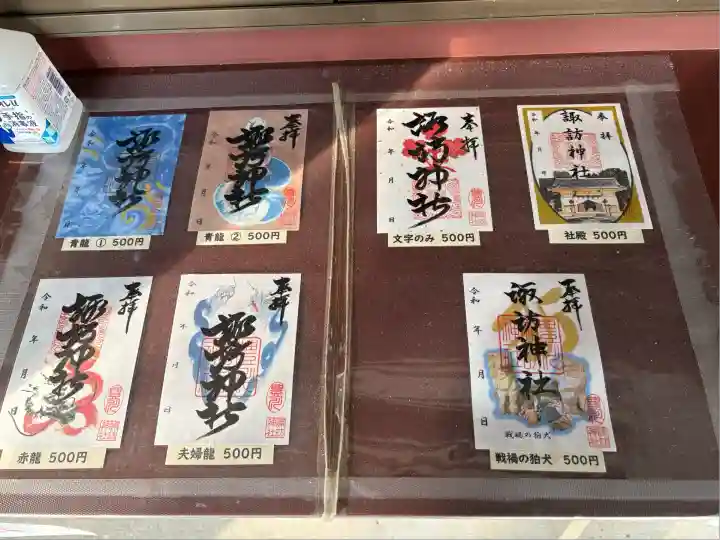 手指の
諏訪神社
令和 年 月 日
青龍 ① 500円
奉拝
諏訪神社
令和 年 月 日
青龍 ② 500円
奉拝
諏訪神社
令和 年 月 日
文字のみ 500円
奉拝
諏訪神社
令和 年 月 日
社殿 500円
奉拝
諏訪神社
令和 年 月 日
赤龍 500円
奉拝
諏訪神社
令和 年 月 日
夫婦龍 500円
奉拝
諏訪神社
令和 年 月 日
戦禍の狛犬
戦禍の狛犬 500円